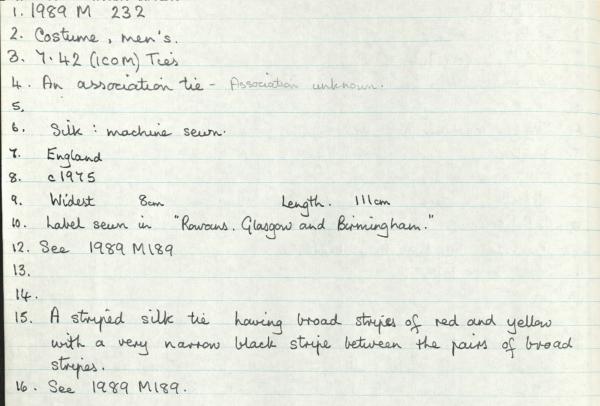 1. 1989 M 232
2. Costume, men's.
3. 7.42 (ICOM) Ties
4. An association tie - Association unknown.
5.
6. Silk : machine sewn.
7. England
8. c1975
9. Widest 8cm Length. 111cm
10. Label sewn in "Rowans. Glasgow and Birmingham."
12. See 1989 M189
13.
14.
15. A striped silk tie having broad stripes of red and yellow
with a very narrow black stripe between the pairs of broad
stripes.
16. See 1989 M189.